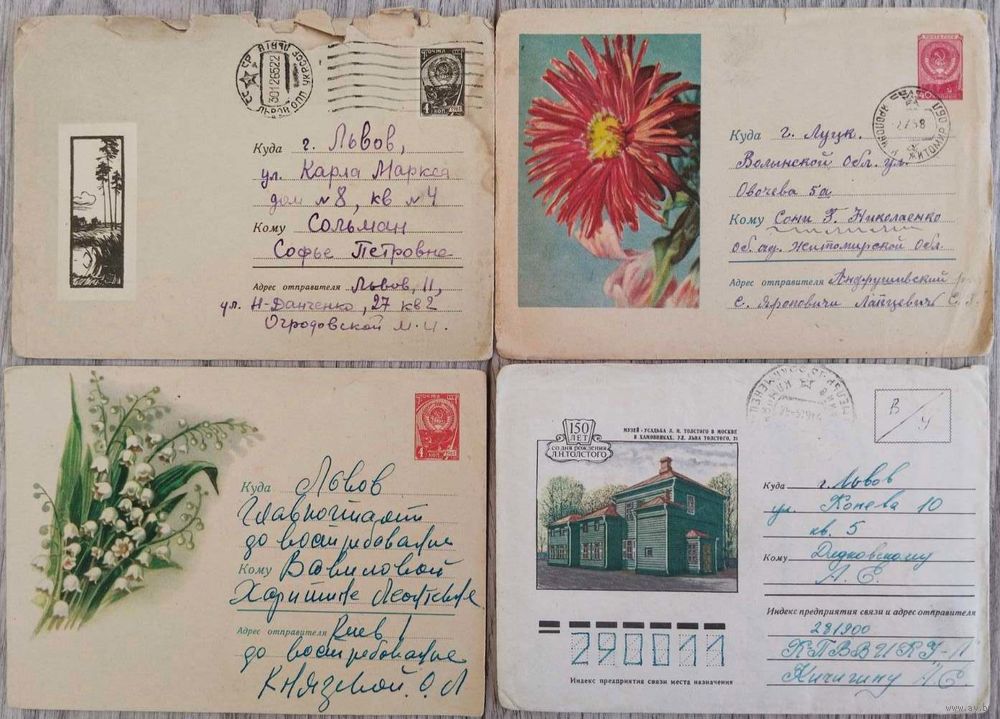 ЛЬВОВ
301265 22
ПОЧТА
4 КОП
Куда г. Львов,
ул. Карла Маркса
дом №8, кв №4
Кому Сольман
Софье Петровне
Адрес отправителя Львов, 11,
ул. Н-Данченко, 27 кв 2
Огродовской М.И.
ПОЧТА СССР
40
ЖИТОМИР
Куда г. Луцк.
Волынской Обл. ул.
Овочева 5а
Кому Сони Николаенко
Житомирской Обл.
Адрес отправителя Андрушивский
с. Яроповичи Ланцевич
ПОЧТА
4 КОП
Куда Львов
Главпочтамт
до востребование
Кому Вавиловой
Харитине
Адрес отправителя Киев 1
до востребование
Князевой О. Л
150
ЛЕТ
СО ДНЯ РОЖДЕНИЯ
Л.Н.ТОЛСТОГО
МУЗЕЙ-УСАДЬБА Л. Н. ТОЛСТОГО В МОСКВЕ
В ХАМОВНИКАХ. УЛ. ЛЬВА ТОЛСТОГО, 21
В/ч
Куда г. Львов
ул. Конева 10
кв. 5
Кому Дидковскому
А. С.
Индекс предприятия связи и адрес отправителя
281900
КПВВИКУ-Л
Кичигину А.С.
290011
Индекс предприятия связи места назначения
www.ay.by